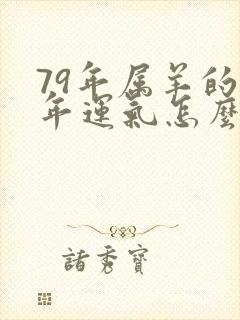 79年属羊的
年運氣怎麼
諸秀寶